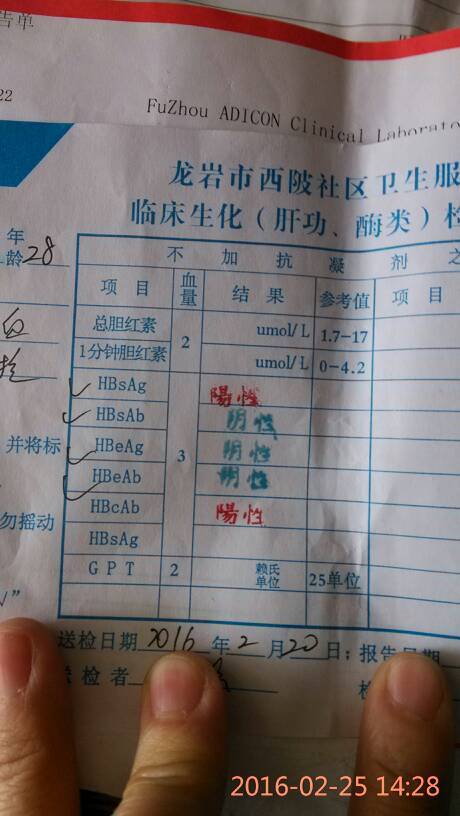 告单
22
FuZhou ADICON Clinical Laborato
龙岩市西陂社区卫生服
临床生化（肝功、酶类）检
年
龄 28
不加抗凝剂之
项目 血量 结果 参考值 项目
总胆红素 2 umol/L 1.7-17
1分钟胆红素 umol/L 0-4.2
HBsAg 3 陽性
HBsAb 阴性
并将标
HBeAg 阴性
HBeAb 阴性
HBcAb 陽性
勿摇动
HBsAg
GPT 2 赖氏单位 25单位
送检日期 2016 年 2 月 20 日；报告日期
送检者
2016-02-25 14:28